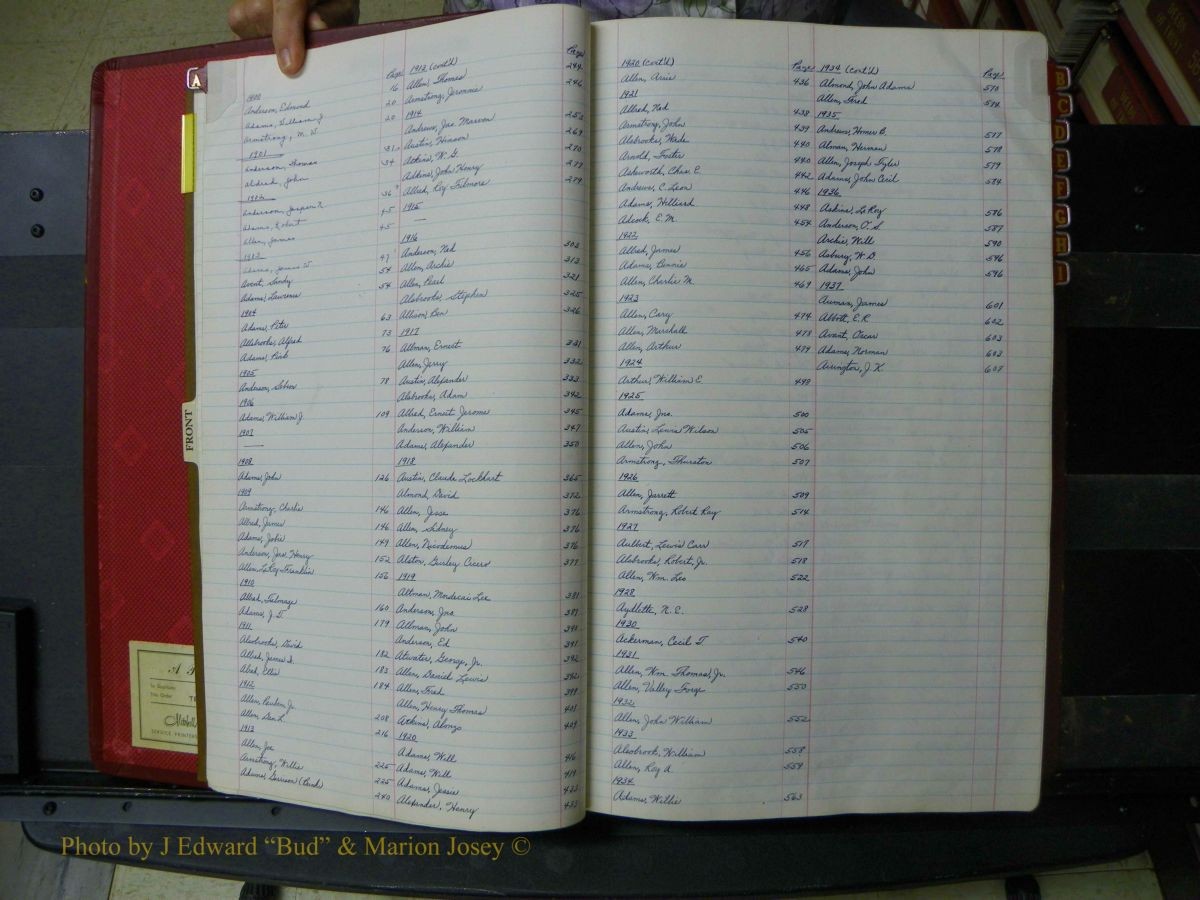 A
Page
1900
Anderson, Edmond 16
Adams, William J. 20
Armstrong, M. W. 20
1901
Anderson, Thomas 31
Aldred, John 34
1902
Anderson, Jasper N. 36
Adams, Robert 45
Allen, James 45
Adams, James W. 47
Avent, Sandy 54
Adams, Lawrence 54
1904
Adams, Pete 63
Allsbrooks, Alfred 73
Adams, Pink 76
1905
Anderson, 78
1906
Adams, William J. 109
1907
—
1908
Adams, John 126
1909
Armstrong, Charlie 146
Allred, James 146
Adams, John 149
Anderson, Jno. Henry 152
Allen, LeRoy Franklin 156
1910
Allred, Talmage 160
Adams, J. T. 179
1911
Alsobrooks, David 182
Allred, James S. 183
Alred, Ellis 184
1912
Allen, Reuben Jr. 208
Allen, Dan L. 216
1913
Allen, Joe 225
Armstrong, Willis 225
Adams, Garrison 240
Page
1913 (cont'd)
Allen, Thomas 244
Armstrong, Jeronnie 246
1914
Andrews, Jas. Marvon 252
Austin, Hinson 269
Atkins, W. G. 270
Adkins, John Henry 277
Allred, Roy Filmore 279
1915
—
1916
Anderson, Ned 303
Allen, Archie 313
Allen, Pearl 321
Alsbrooks, Stephen 325
Allison, Ben 326
1917
Altman, Ernest 331
Allen, Jerry 332
Austin, Alexander 333
Alsbrooks, Adam 342
Allred, Ernest Jerome 345
Anderson, William 347
Adams, Alexander 350
1918
Austin, Claude Lockhart 365
Almond, David 372
Allen, Jesse 376
Allen, Sidney 376
Allen, Nicodemus 376
Alston, Gurley Cicero 377
1919
Altman, Mordecai Lee 381
Anderson, Jno. 389
Altman, John 391
Anderson, Ed 391
Atwater, George, Jr. 392
Allen, Daniel Lewis 392
Allen, Fred 399
Allen, Henry Thomas 401
Atkins, Alonzo 409
1920
Adams, Will 416
Adams, Will 419
Adams, Jessie 433
Alexander, Henry 433
Page
1920 (cont'd)
Allen, Arrie 436
1921
Allred, Ned 438
Armstrong, John 439
Alsbrooks, Wade 440
Arnold, Foster 440
Ashworth, Chas. E. 442
Andrews, C. Leon 446
Adams, Hilliard 448
Adcock, E. M. 454
1922
Allred, James 456
Adams, Bennie 465
Allen, Charlie M. 469
1923
Allen, Cary 474
Allen, Marshall 478
Allen, Arthur 479
1924
Arthur, William E. 498
1925
Adams, Jno. 500
Austin, Lewis Wilson 505
Allen, John 506
Armstrong, Thurston 507
1926
Allen, Jarrett 509
Armstrong, Robert Ray 514
1927
Aulbert, Lewis Carr 517
Alsbrooks, Robert, Jr. 518
Allen, Wm. Leo 522
1928
Aydlett, N. E. 528
1930
Ackerman, Cecil T. 540
1931
Allen, Wm. Thomas, Jr. 546
Allen, Valley Forge 550
1932
Allen, John William 552
1933
Alesbrook, William 558
Allen, Roy A. 559
1934
Adams, Willie 563
Page
1934 (cont'd)
Almond, John Adams 570
Allen, Fred 574
1935
Andrews, Homer B. 577
Alman, Herman 578
Allen, Joseph Tyler 579
Adams, John Cecil 584
1936
Askins, LeRoy 586
Anderson, O. S. 587
Archie, Will 590
Asbury, W. D. 596
Adams, John 596
1937
Auman, James 601
Abbott, E. R. 602
Avant, Oscar 603
Adams, Norman 603
Arrington, J. K. 607
B
C
D
E
F
G
H
I
FRONT
Photo by J Edward “Bud” & Marion Josey ©